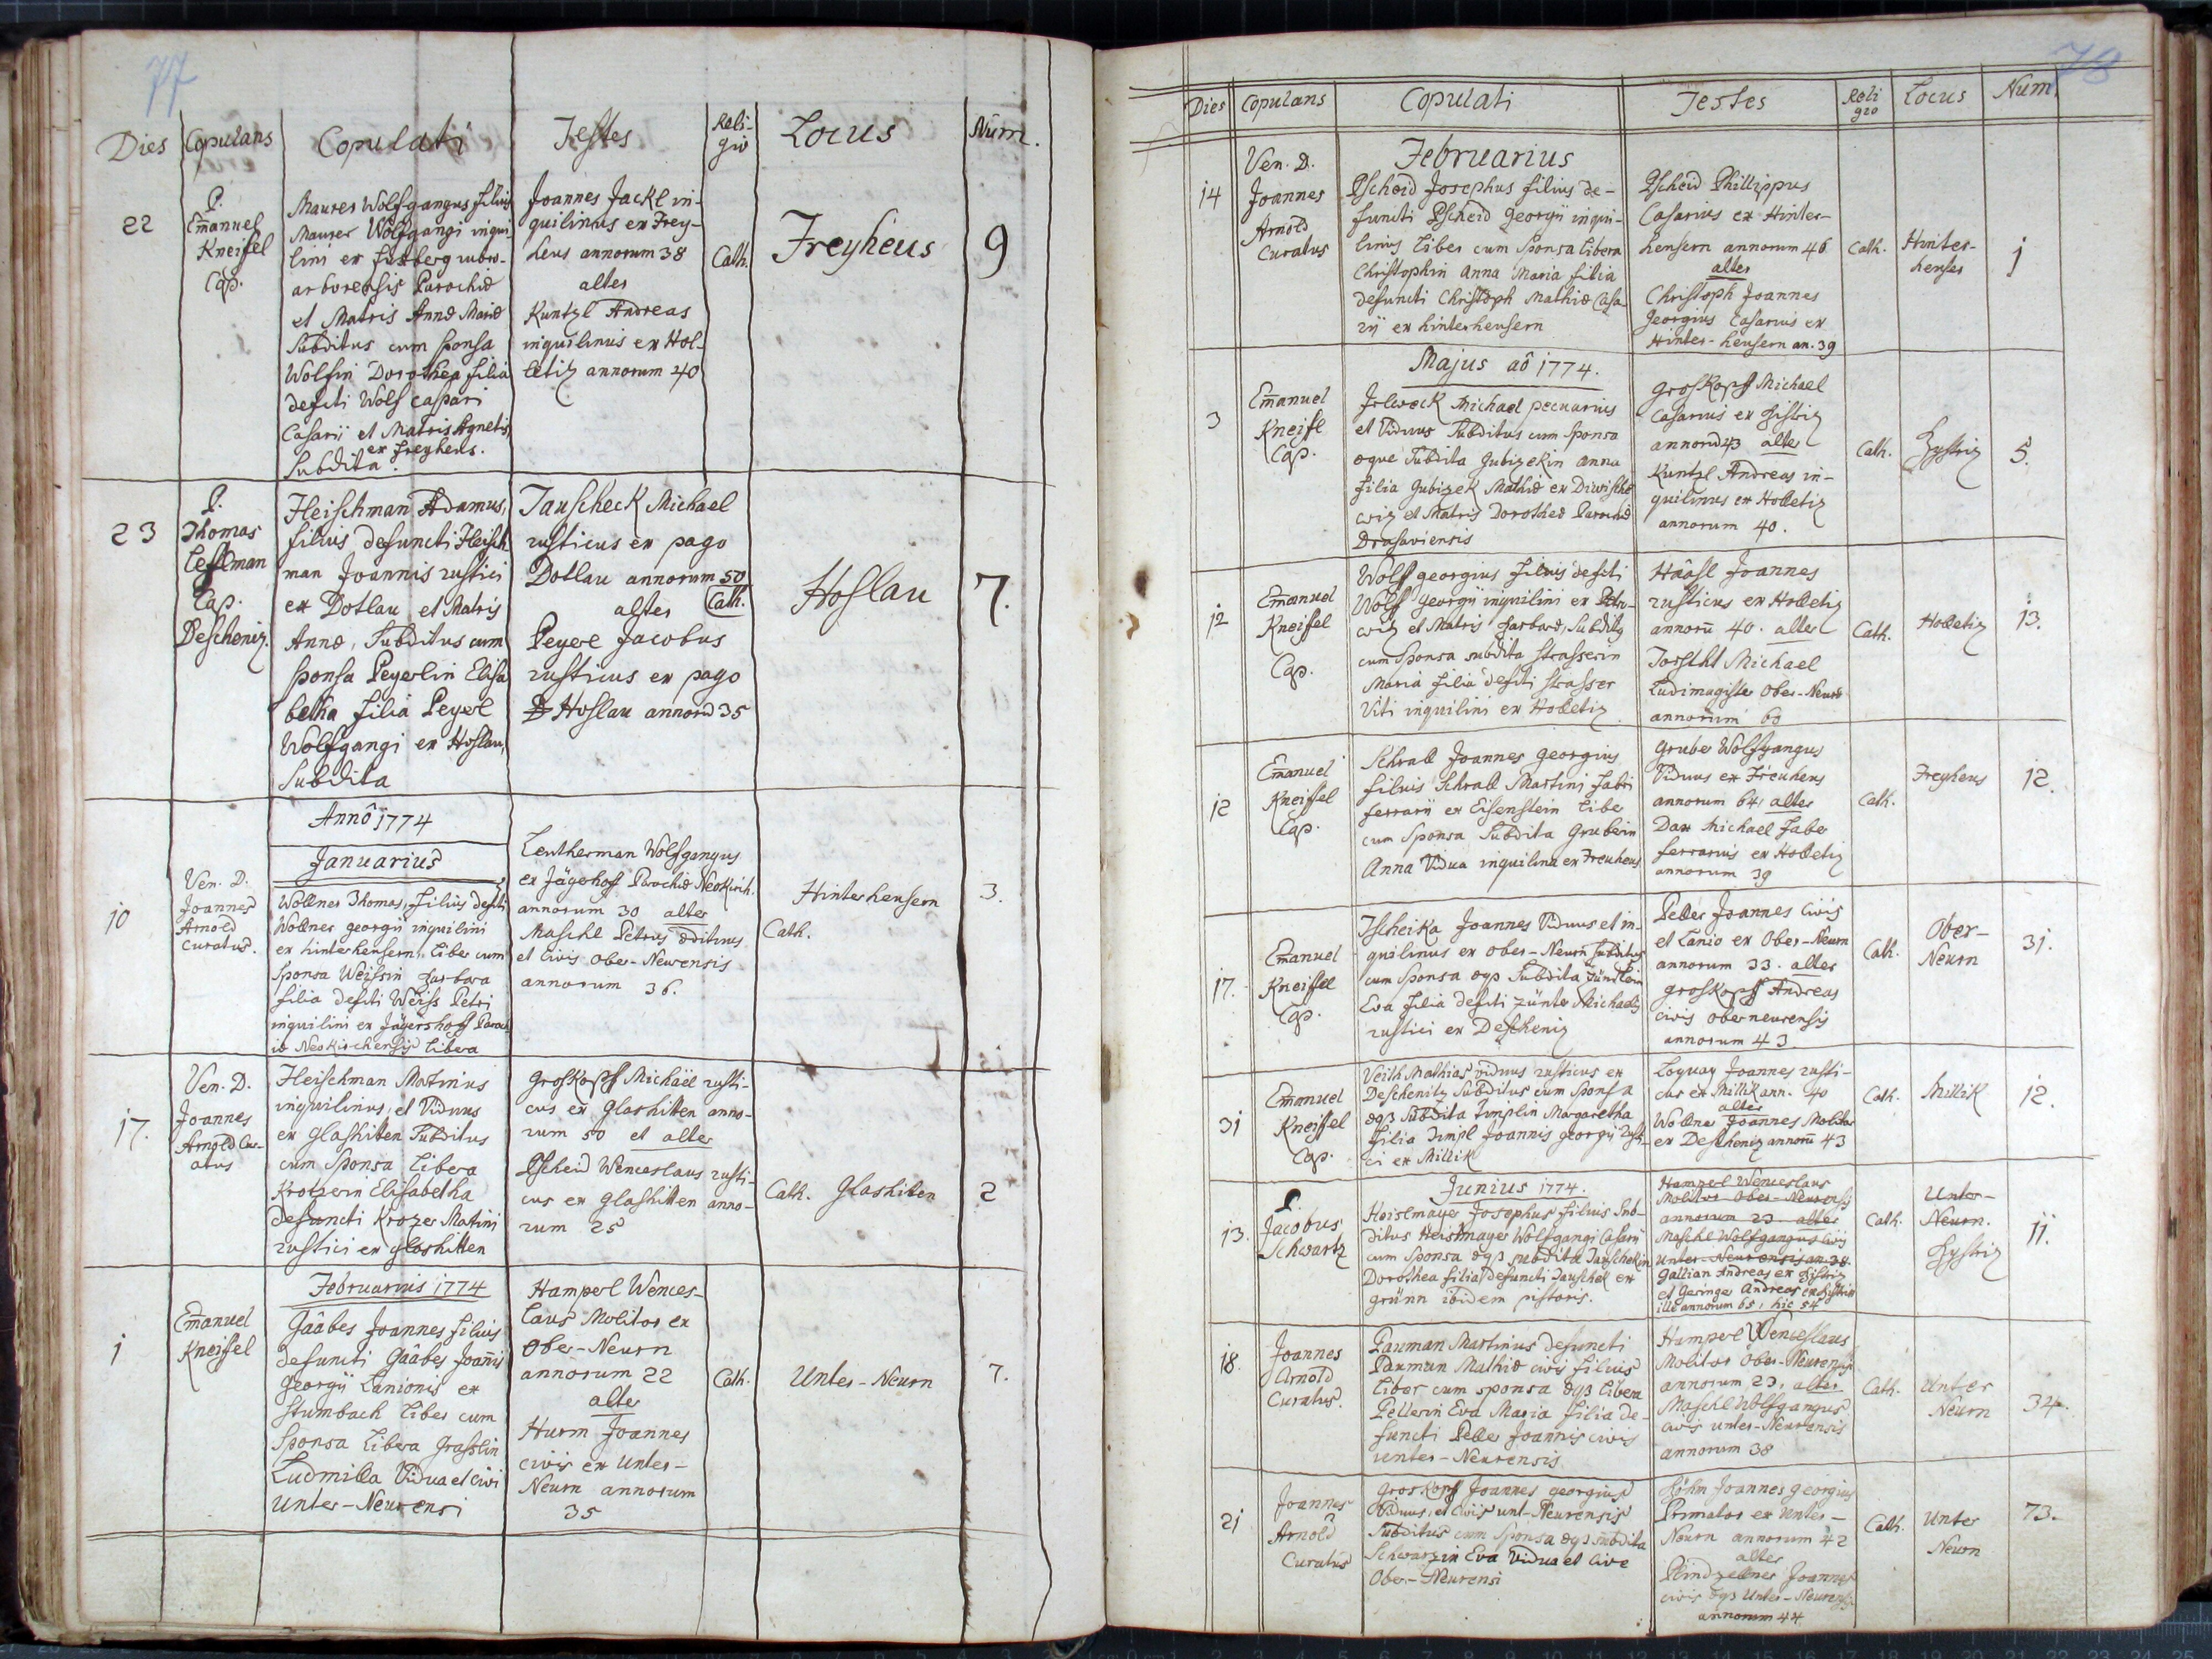 77
Dies Copulans Copulati Testes Reli- Locus Num.
gio
22
P.
Emanuel
Kneissel
Cap.
Maurer Wolfgangus filius
Maurer Wolfgangi inqui-
lini ex
arborensis Parochiæ
et Matris Annæ Mariæ
Subditus cum sponsa
Wolfin Dorothea filia
defcti Wolf Caspari
Casarii et Matris Agnetis,
ex Freyheus.
Subdita.
Joannes Jackl in-
quilinus ex Frey-
heus annorum 38
alter
Kuntzl Andreas
inquilinus ex Hol-
letiz annorum 40
Cath.
Freyheus
9
23
P.
Thomas
Leslman
Cap.
Descheniz.
Fleischman Adamus,
filius defuncti Fleisch-
man Joannis rustici
ex Dotlau et Matris
Annæ, Subditus cum
sponsa Peyerlin Elisa
betha filia Peyerl
Wolfgangi ex Hoslau,
Subdita
Tauscheck Michael
rusticus ex pago
Dotlau annorum 50
alter Cath.
Peyerl Jacobus
rusticus ex pago
Hoslau annorū 35
Hoslau
7.
Annô 1774
Januarius
10
Ven. D.
Joannes
Arnold
Curatus.
Wollner Thomas, filius defcti
Wollner Georgii inquilini
ex hinterheusern, Liber cum
Sponsa Weissin Barbara
filia defcti Weiss Petri
inquilini ex Jägershoff Paroch
iæ Neokirchensis libera
Leutherman Wolfgangus
ex Jägerhoff Parochiæ Neokirch.
annorum 30 alter
Maschl Petrus ædituus
et Civis Ober-Neurensis
annorum 36.
Cath.
Hinterheusern
3.
17.
Ven. D.
Joannes
Arnold Cur-
atus
Fleischman Martinus
inquilinus, et Viduus
ex Glashitten Subditus
cum Sponsa Libera
Krotzerin Elisabetha
defuncti Krozer Martini
rustici ex glashitten
Groskopff Michaël rusti-
cus ex Glashitten anno-
rum 50 et alter
Pscheid Wenceslaus rusti-
cus ex glashitten anno-
rum 25
Cath.
Glashiten
2
Februarius 1774
1
Emanuel
Kneissel
Gaâbes Joannes filius
defuncti Gaâbes Joañis
Georgii Lanionis ex
Stumbach Liber cum
Sponsa Libera Grasslin
Ludmilla Vidua et Civi
Unter-Neurensi
Hamperl Wences-
laus Molitor ex
Ober-Neurn
annorum 22
alter
Hurm Joannes
civis ex Unter-
Neurn annorum
35
Cath.
Unter-Neurn
7.
78
Dies Copulans Copulati Testes Reli Locus Num.
gio
Februarius
14
Ven. D.
Joannes
Arnold
Curatus
Pscheid Josephus filius de-
functi Pscheid Georgii inqui-
linus Liber cum Sponsa Libera
Christophin Anna Maria filia
defuncti Christoph Mathiæ Casa-
rii ex hinterheusern
Pscheid Phillippus
Casarius ex Hinter-
heusern annorum 46
alter
Christoph Joannes
Georgius Casarius ex
Hinter-heusern an. 39
Cath.
Hinter-
heuser
1
Majus aô 1774.
3
Emanuel
Kneisl
Cap.
Michael pecuarius
et Viduus Subditus cum Sponsa
æque Subdita Gubizekin Anna
filia Gubizek Mathiæ ex
et Matris Dorotheæ Parochiæ
Drasaviensis
Groskopff Michael
Casarius ex Bistriz
annorū 43 alter
Kuntzl Andreas in-
quilinus ex Holletiz
annorum 40.
Cath.
Bystriz
5.
12
Emanuel
Kneissel
Cap.
Wolff Georgius filius defcti
Wolff Georgii inquilini ex Petro-
wiz et Matris Barbaræ, Subditus
cum Sponsa subdita Strasserin
Maria filia defcti Strasser
Viti inquilini ex Holletiz
Haâsl Joannes
rusticus ex Holletiz
annorū 40. alter
Michael
Ludimagister Ober-Neurn
annorum 60
Cath.
Holletiz
13.
12
Emanuel
Kneissel
Cap.
Schrall Joannes Georgius
filius Schrall Martini fabri
ferrarii ex Eisenstein Liber
cum Sponsa Subdita Gruberin
Anna Vidua inquilina ex Freuheus
Gruber Wolfgangus
Viduus ex Freuheus
annorum 64, alter
Dax Michael Faber
ferrarius ex Holletiz
annorum 39
Cath.
Freyheus
12.
17.
Emanuel
Kneissel
Cap.
Tscheika Joannes Viduus et in-
quilinus ex Ober-Neurn subditus
cum Sponsa æqȝ Subdita Zünterin
Eva filia defcti Zünter Michaelis
rustici ex Descheniz
Peller Joannes Civis
et Lanio ex Ober-Neurn
annorum 33. alter
Groskopff Andreas
Civis oberneurensis
annorum 43
Cath.
Ober-
Neurn
31.
31
Emanuel
Kneissel
Cap.
Veith Mathias viduus rusticus ex
Deschenitz Subditus cum Sponsa
æqȝ Subdita Timplin Margaretha
filia Timpl Joannis Georgii rusti-
ci ex Millik
Joannes rusti-
cus ex Millik ann. 40
alter
Wollner Joannes Molitor
ex Descheniz annorū 43
Cath.
Millik
12.
Junius 1774.
13.
P.
Jacobus
Schwartz
Heislmayer Josephus filius Sub-
ditus Heislmayer Wolfgangi Casarii
cum Sponsa æqȝ subdita Tauschekin
Dorothea filia defuncti Tauschek ex
grünn ibidem pistoris.
Hamperl Wenceslaus
Molitor Ober-Neurensis
annorum 23 alter
Maschl Wolfgangus Civis
Unter-Neurensis an. 38.
Gallian Andreas ex Bistriz
et Geringer Andreas ex Bistriz
ille annorum 65, hic 54
Cath.
Unter-
Neurn.
Bystriz
11.
18.
Joannes
Arnold
Curatus.
Pauman Martinus defuncti
Pauman Mathiæ civis filius
Liber cum sponsa æqȝ libera
Pellerin Eva Maria filia de-
functi Peller Joannis civis
unter-Neurensis
Hamperl Wenceslaus
Molitor Ober-Neurensis
annorum 23, alter
Maschl Wolfgangus
civis unter-Neurensis
annorum 38
Cath.
Unter
Neurn
34.
21
Joannes
Arnold
Curatus
Groskopff Joannes Georgius
Viduus, et Civis unt-Neurensis
Subditus cum Sponsa æqȝ subdita
Schwarzin Eva Vidua et Cive
Ober-Neurensi
Böhm Joannes Georgius
Primator ex Unter-
Neurn annorum 42
alter
Plindzellner Joannes
civis æqȝ Unter-Neurensis
annorum 44
Cath.
Unter
Neurn
73.